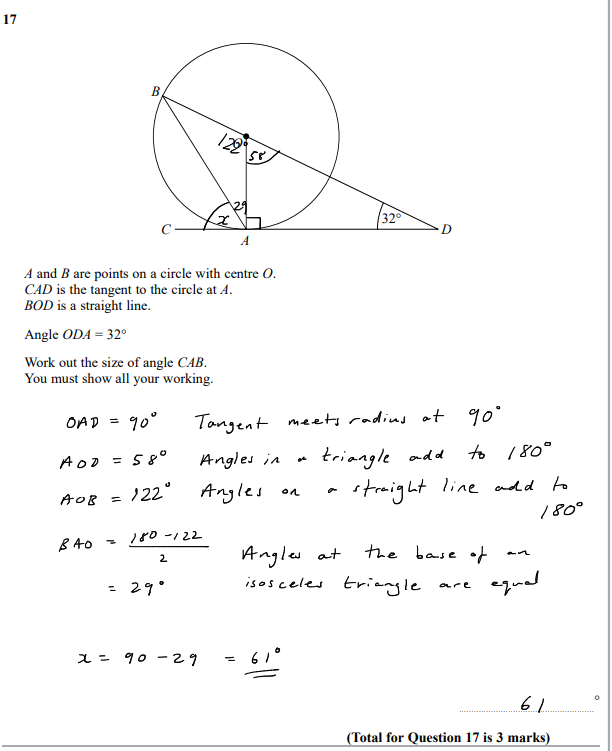 17
B
122°
58
29
x
32°
C
A
D
A and B are points on a circle with centre O.
CAD is the tangent to the circle at A.
BOD is a straight line.
Angle ODA = 32°
Work out the size of angle CAB.
You must show all your working.
OAD = 90° Tangent meets radius at 90°
AOD = 58° Angles in a triangle add to 180°
AOB = 122° Angles on a straight line add to
180°
BAO = 180 - 122
2
Angles at the base of an
= 29° isosceles triangle are equal
x = 90 - 29 = 61°
61 °
(Total for Question 17 is 3 marks)